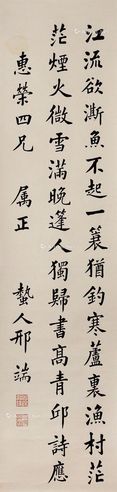 江流欲澌魚不起一蓑猶釣寒蘆裏漁村茫
茫煙火微雪滿晚篷人獨歸書高青邱詩應
惠榮四兄 屬正 蟄人邢端